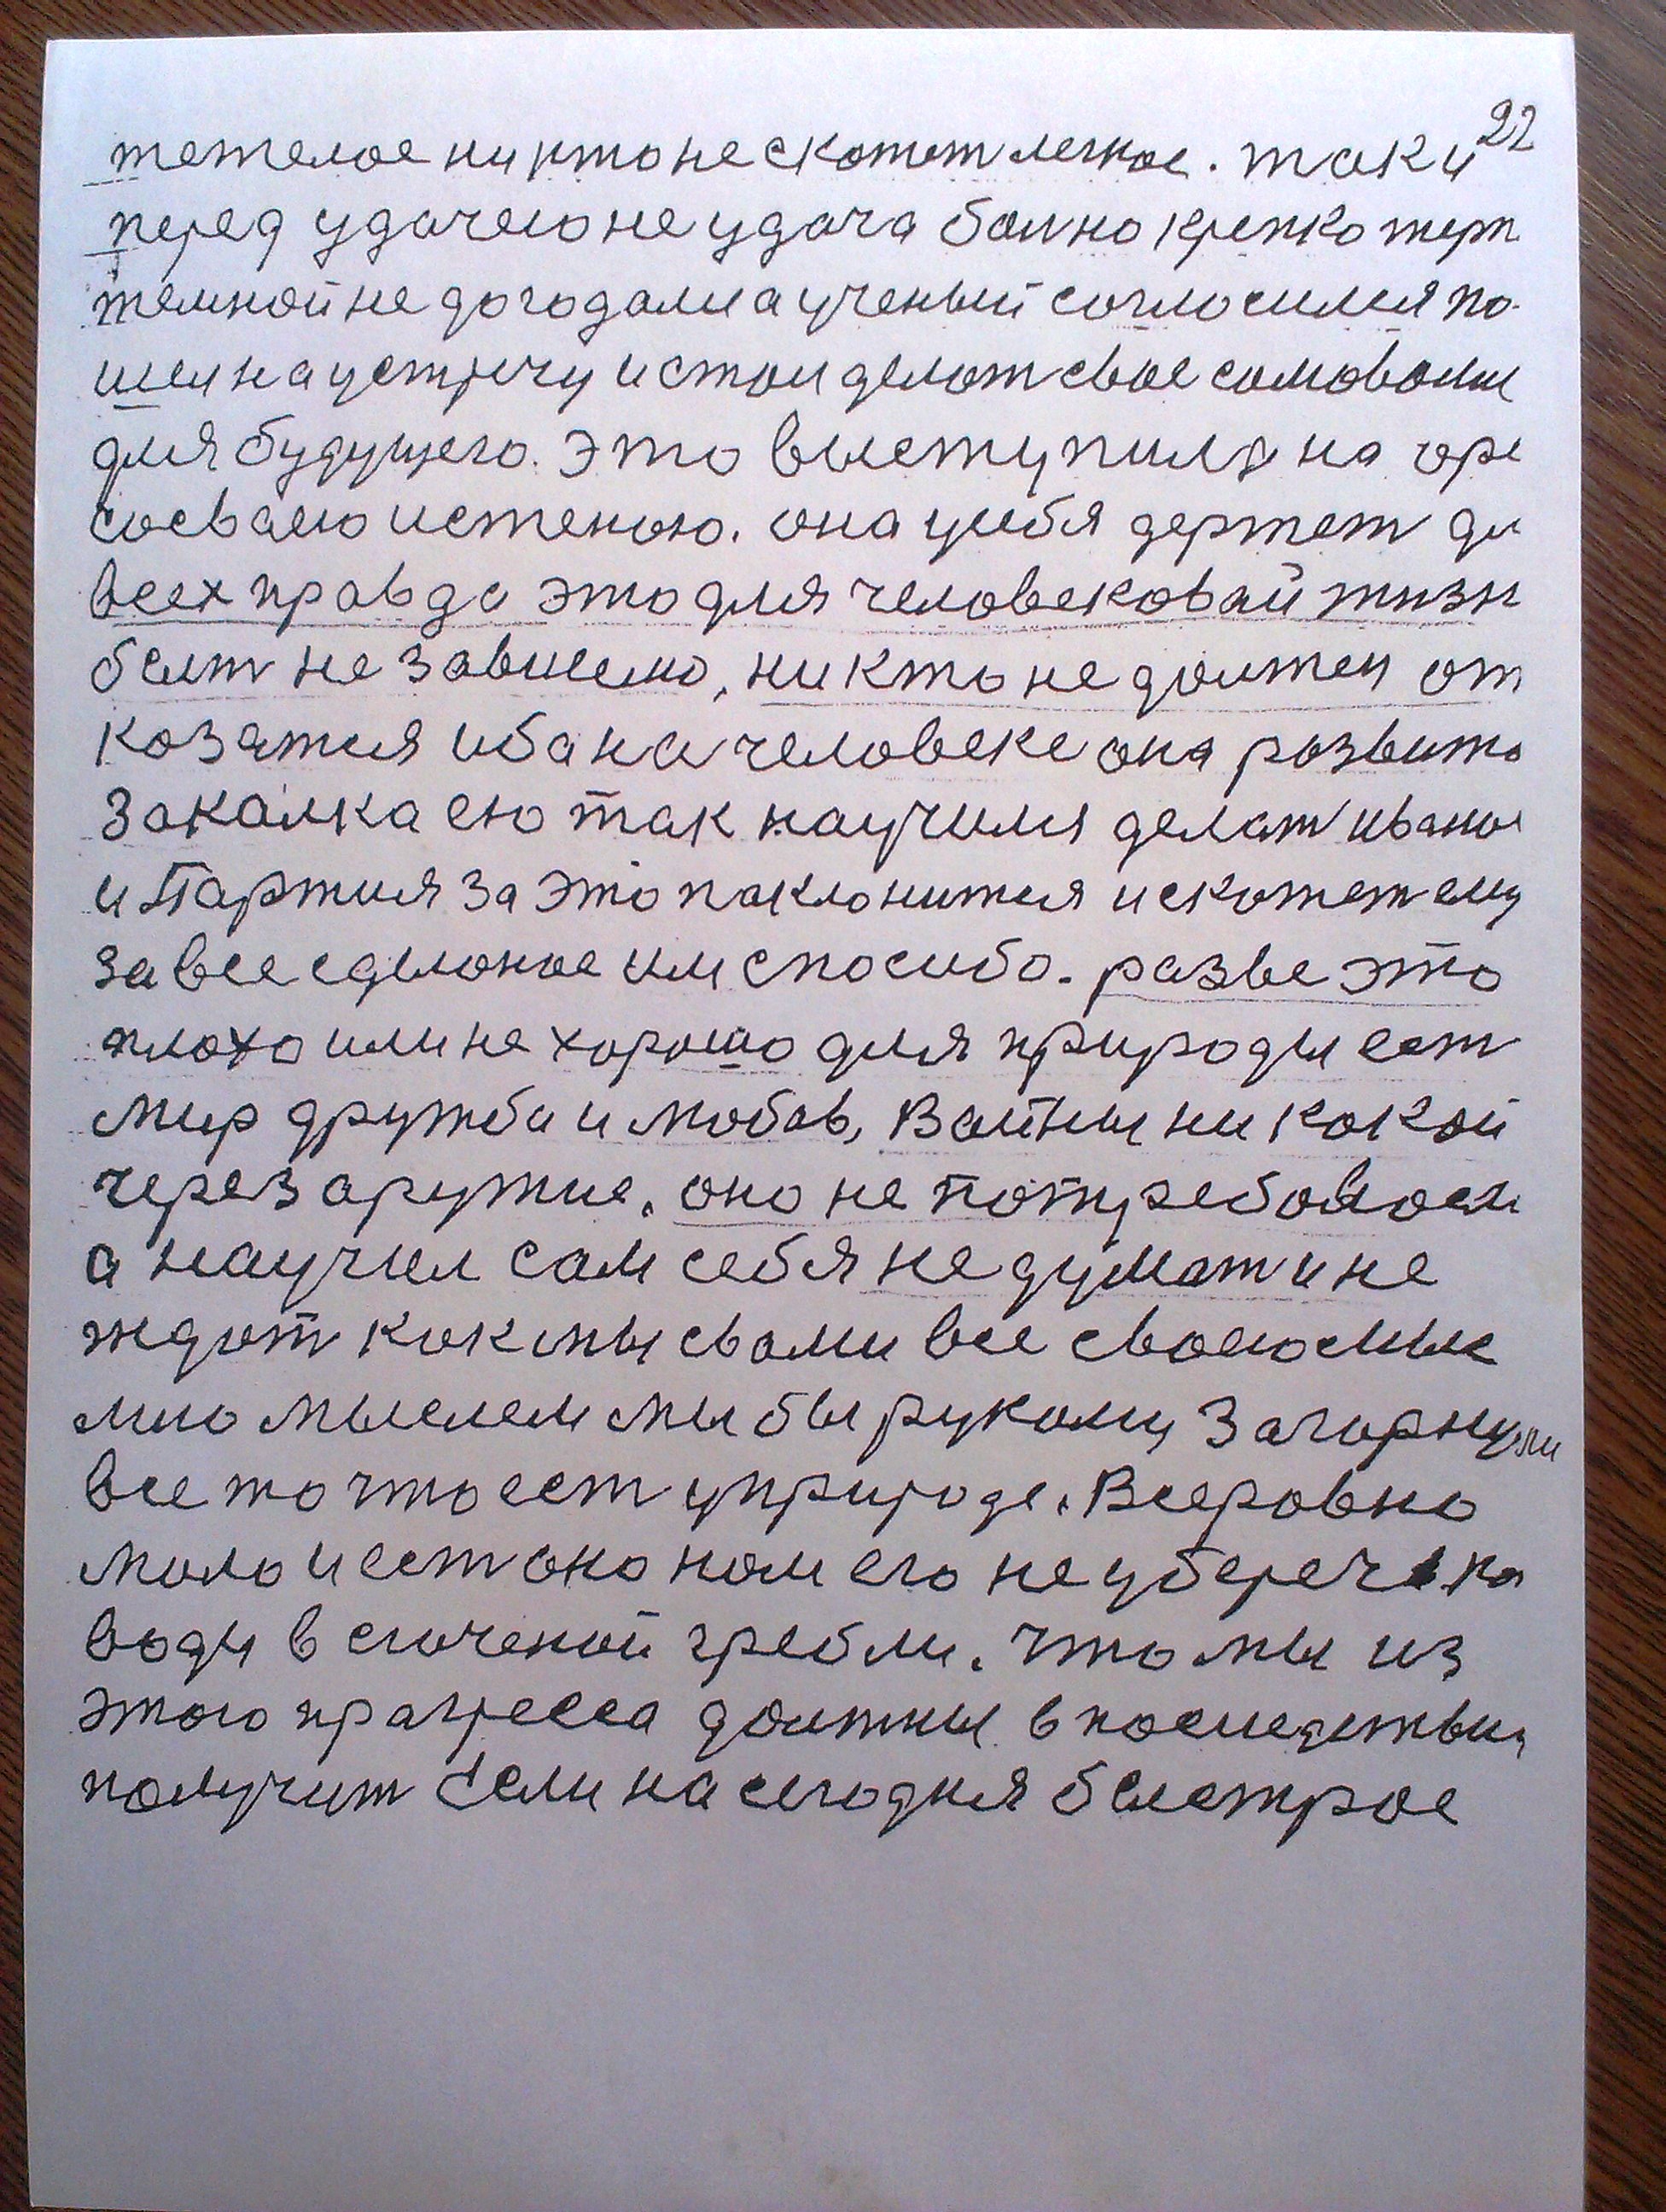 22
тежелое ни кто не скажет легкое. так и
перед удачею не удача болно крепко жерт
темной не догодали а ученый согласился по
шел на устречу и стал делат свое самоволи
для будущего. Это выступила на оре
соеваею истеною. она уибя держет дл
всех правда это для человековай жизн
быт не зависемо, ни кто не должен от
козатися иба на человеке она розвита
Закалка ею так научился делат иванов
и Партия за это паклонится и скажет ему
за все сделоное им спосибо. разве это
плохо или не хорошо для природы ест
мир дружба и любов, Вайны ни какой
через аружие. оно не потребовоси
а научил сам себя не думат и не
ждот как мы с вами все своею сильс
мыслем мы бы рукому Загорнули
все то что ест у природе. Всеровно
мало и ест оно нам его не убереч ка
воды в сточеной гребли. что мы из
этого прагресса должны в последствии
получит Если на сегодня быстрое